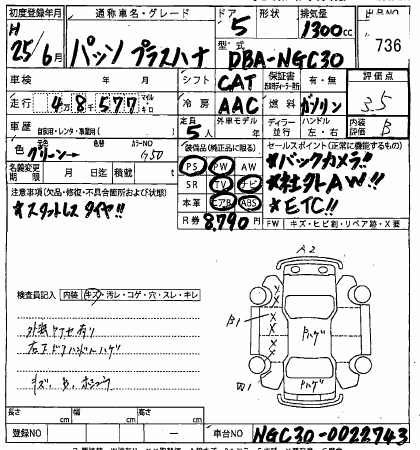 初度登録年月 通称車名・グレード ドア 形状 排気量 出品NO
H 25年 6月 パッソ プラスハナ 5 1300cc 736
型式 DBA-NGC30
車検 年 月 シフト CAT 保証書 有・無 評価点
走行 4万8千577 マイル キロ 冷房 AAC 燃料 ガソリン 3.5
車歴 自家用・レンタ・事業用( ) 定員 5人 外車モデル 年 ディーラー 並行 ハンドル 左・右 内装 B
色 グリーン→ 色替 カラーNO G50
名義変更期限 月 日 迄 積載
装備品(純正品に限る)
PS PW AW
SR TV ナビ
本革 エアB ABS
R券 8,790円
セールスポイント(正常に機能するもの)
*バックカメラ!!
*社外AW!!
*ETC!!
FW キズ・ヒビ割・リペア跡・X要
注意事項(欠品・修復・不具合箇所および状態)
*スタットレスタイヤ!!
検査員記入 内装(キズ・汚レ・コゲ・穴・スレ・キレ)
外装ヤケ有り
右下ドアハンドルハゲ
A2
B1
ハゲ
ハゲ
長さ cm 幅 cm 高さ cm
登録NO 車台NO NGC30-0022743